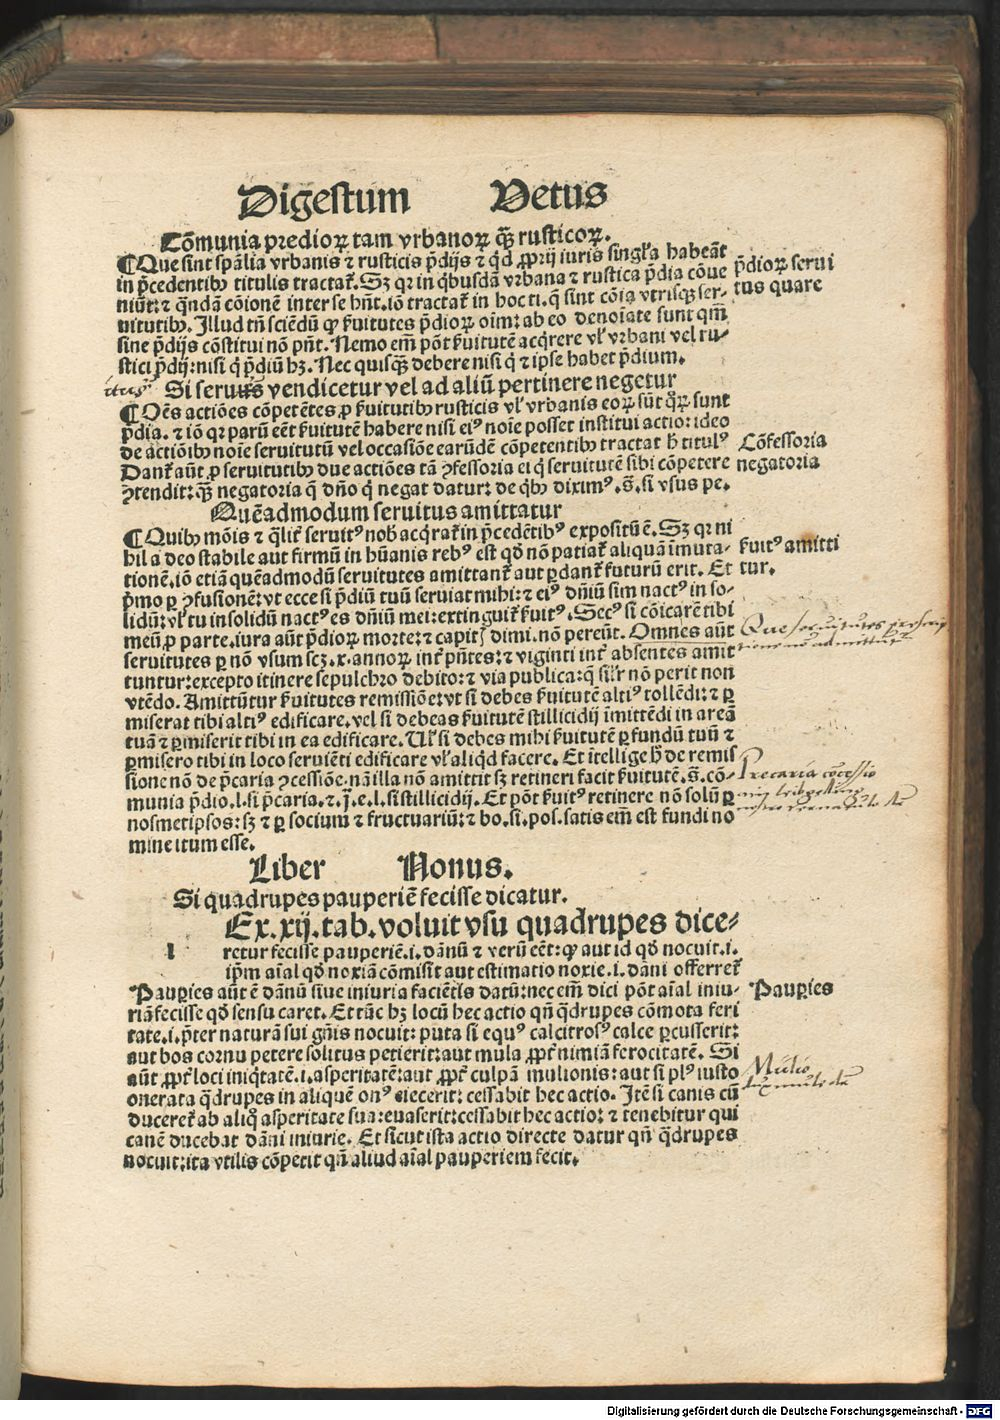 Digestum Vetus
Cõmunia predioꝝ tam vrbanoꝝ q̃ꝫ rusticoꝝ.
¶Que sint sp̃alia vrbanis ⁊ rusticis p̃dijs ⁊ q̃d ꝓprij iuris singl'a habeãt
in p̃cedentibꝰ titulis tractat᷑. Sꝫ qꝛ in q̃busdã vrbana ⁊ rustica p̃dia cõue
niũt: ⁊ q̃ndã cõionẽ inter se hñt. iõ tractat᷑ in hoc ti. q̃ sint cõia vtrisqꝫ ser-
uitutibꝰ. Illud tñ sciẽdũ ꝙ ẜuitutes p̃dioꝝ oĩm: ab eo denoĩate sunt qm̃
sine p̃dijs cõstitui nõ pñt. Nemo em̃ põt ẜuitutẽ acq̃rere vl' vrbani vel ru-
stici p̃dij: nisi q̃ p̃diũ hꝫ. Nec quisq̃ꝫ debere nisi q̃ ⁊ ipse habet p̃dium.
p̃dioꝝ serui
tus quare
itus
Si seruus vendicetur vel ad aliũ pertinere negetur
¶Oẽs actiões cõpetẽtes ꝓ ẜuitutibꝰ rusticis vl' vrbanis eoꝝ sũt q̃ꝝ sunt
p̃dia. ⁊ iõ qꝛ parũ eẽt ẜuitutẽ habere nisi eiꝰ noĩe posset institui actio: ideo
de actiõibꝰ noĩe seruitutũ vel occasiõe earũdẽ cõpetentibꝰ tractat h̃ titulꝰ
Dant᷑ aũt ꝓ seruitutibꝰ due actiões tã ꝯfessoria ei q̃ seruitutẽ sibi cõpetere
ꝯtendit: q̃ꝫ negatoria q̃ dño q̃ negat datur: de q̃bꝰ diximꝰ. s̃. si vsus pe.
Cõfessoria
negatoria
Quẽadmodum seruitus amittatur
¶Quibꝰ mõis ⁊ q̃lit᷑ seruitꝰ nob̃ acq̃rat᷑ in p̃cedẽtibꝰ expositũ ẽ. Sꝫ qꝛ ni
hil a deo stabile aut firmũ in hũanis rebꝰ est qð nõ patiat᷑ aliquã imuta-
tionẽ. iõ etiã quẽadmodũ seruitutes amittant᷑ aut ꝑdant᷑ ẜuturũ erit. Et
p̃mo ꝑ ꝯfusionẽ: vt ecce si p̃diũ tuũ seruiat mihi: ⁊ eiꝰ dñiũ sim nactꝰ in so-
lidũ: vl' tu in solidũ nactꝰ es dñiũ mei: extinguit᷑ ẜuitꝰ. Secꝰ si cõicarẽ tibi
meũ ꝓ parte. iura aũt p̃dioꝝ morte: ⁊ capitꝭ dimi. nõ pereũt. Omnes aũt
seruitutes ꝑ nõ vsum scꝫ. x. annoꝝ int᷑ pñtes: ⁊ viginti int᷑ absentes amit
tuntur: excepto itinere sepulchro debito: ⁊ via publica: q̃ sil'r nõ perit non
vtẽdo. Amittũtur ẜuitutes remissiõe: vt si debes ẜuitutẽ altiꝰ tollẽdi: ⁊ ꝑ
miserat tibi altiꝰ edificare. vel si debeas ẜuitutẽ stillicidij ĩmittẽdi in areã
tuã ⁊ ꝑmiserit tibi in ea edificare. Ul' si debes mihi ẜuitutẽ ꝑ fundũ tuũ ⁊
ꝑmisero tibi in loco seruiẽti edificare vl' aliq̃d facere. Et ĩtellige h̃ de remis
sione nõ de p̃caria ꝯcessiõe. nã illa nõ amittit sꝫ retineri facit ẜuitutẽ. s̃. cõ-
munia p̃dio. l. si p̃caria. ⁊. j̃. e. l. si stillicidij. Et põt ẜuitꝰ retinere nõ solũ ꝑ
nosmetipsos: sꝫ ⁊ ꝑ socium ⁊ fructuariũ: ⁊ bo. fi. pos. satis em̃ est fundi no
mine itum esse.
ẜuitꝰ amitti
tur.
Precaria
Liber Nonus.
Si quadrupes pauperiẽ fecisse dicatur.
Ex. xij. tab. voluit vsu quadrupes dice-
l retur fecisse pauperiẽ. i. dãnũ ⁊ verũ eẽt: ꝙ aut id qð nocuit. i.
ip̃m aĩal qð noxiã cõmisit aut estimatio noxie. i. dãni offerret᷑
Pauꝑies aũt ẽ dãnũ sine iniuria faciẽtis datũ: nec em̃ dici põt aĩal iniu-
riã fecisse qð sensu caret. Et tũc hꝫ locũ hec actio qñ q̃drupes cõmota feri
tate. i. p̃ter naturã sui gñis nocuit: puta si equꝰ calcitrosꝰ calce ꝑcusserit:
aut bos cornu petere solitus petierit: aut mula ꝓpt᷑ nimiã ferocitatẽ. Si
aũt ꝓpt᷑ loci iniq̃tatẽ. i. asperitatẽ: aut ꝓpt᷑ culpã mulionis: aut si plꝰ iusto
onerata q̃drupes in aliquẽ onꝰ eiecerit: cessabit hec actio. Itẽ si canis cũ
duceret᷑ ab aliq̃ asperitate sua: euaserit: cessabit hec actio: ⁊ tenebitur qui
canẽ ducebat dãni iniurie. Et sicut ista actio directe datur qñ q̃drupes
nocuit: ita vtilis cõpetit qñ aliud aĩal pauperiem fecit.
Pauꝑies
Mulio
Digitalisierung gefördert durch die Deutsche Forschungsgemeinschaft - DFG